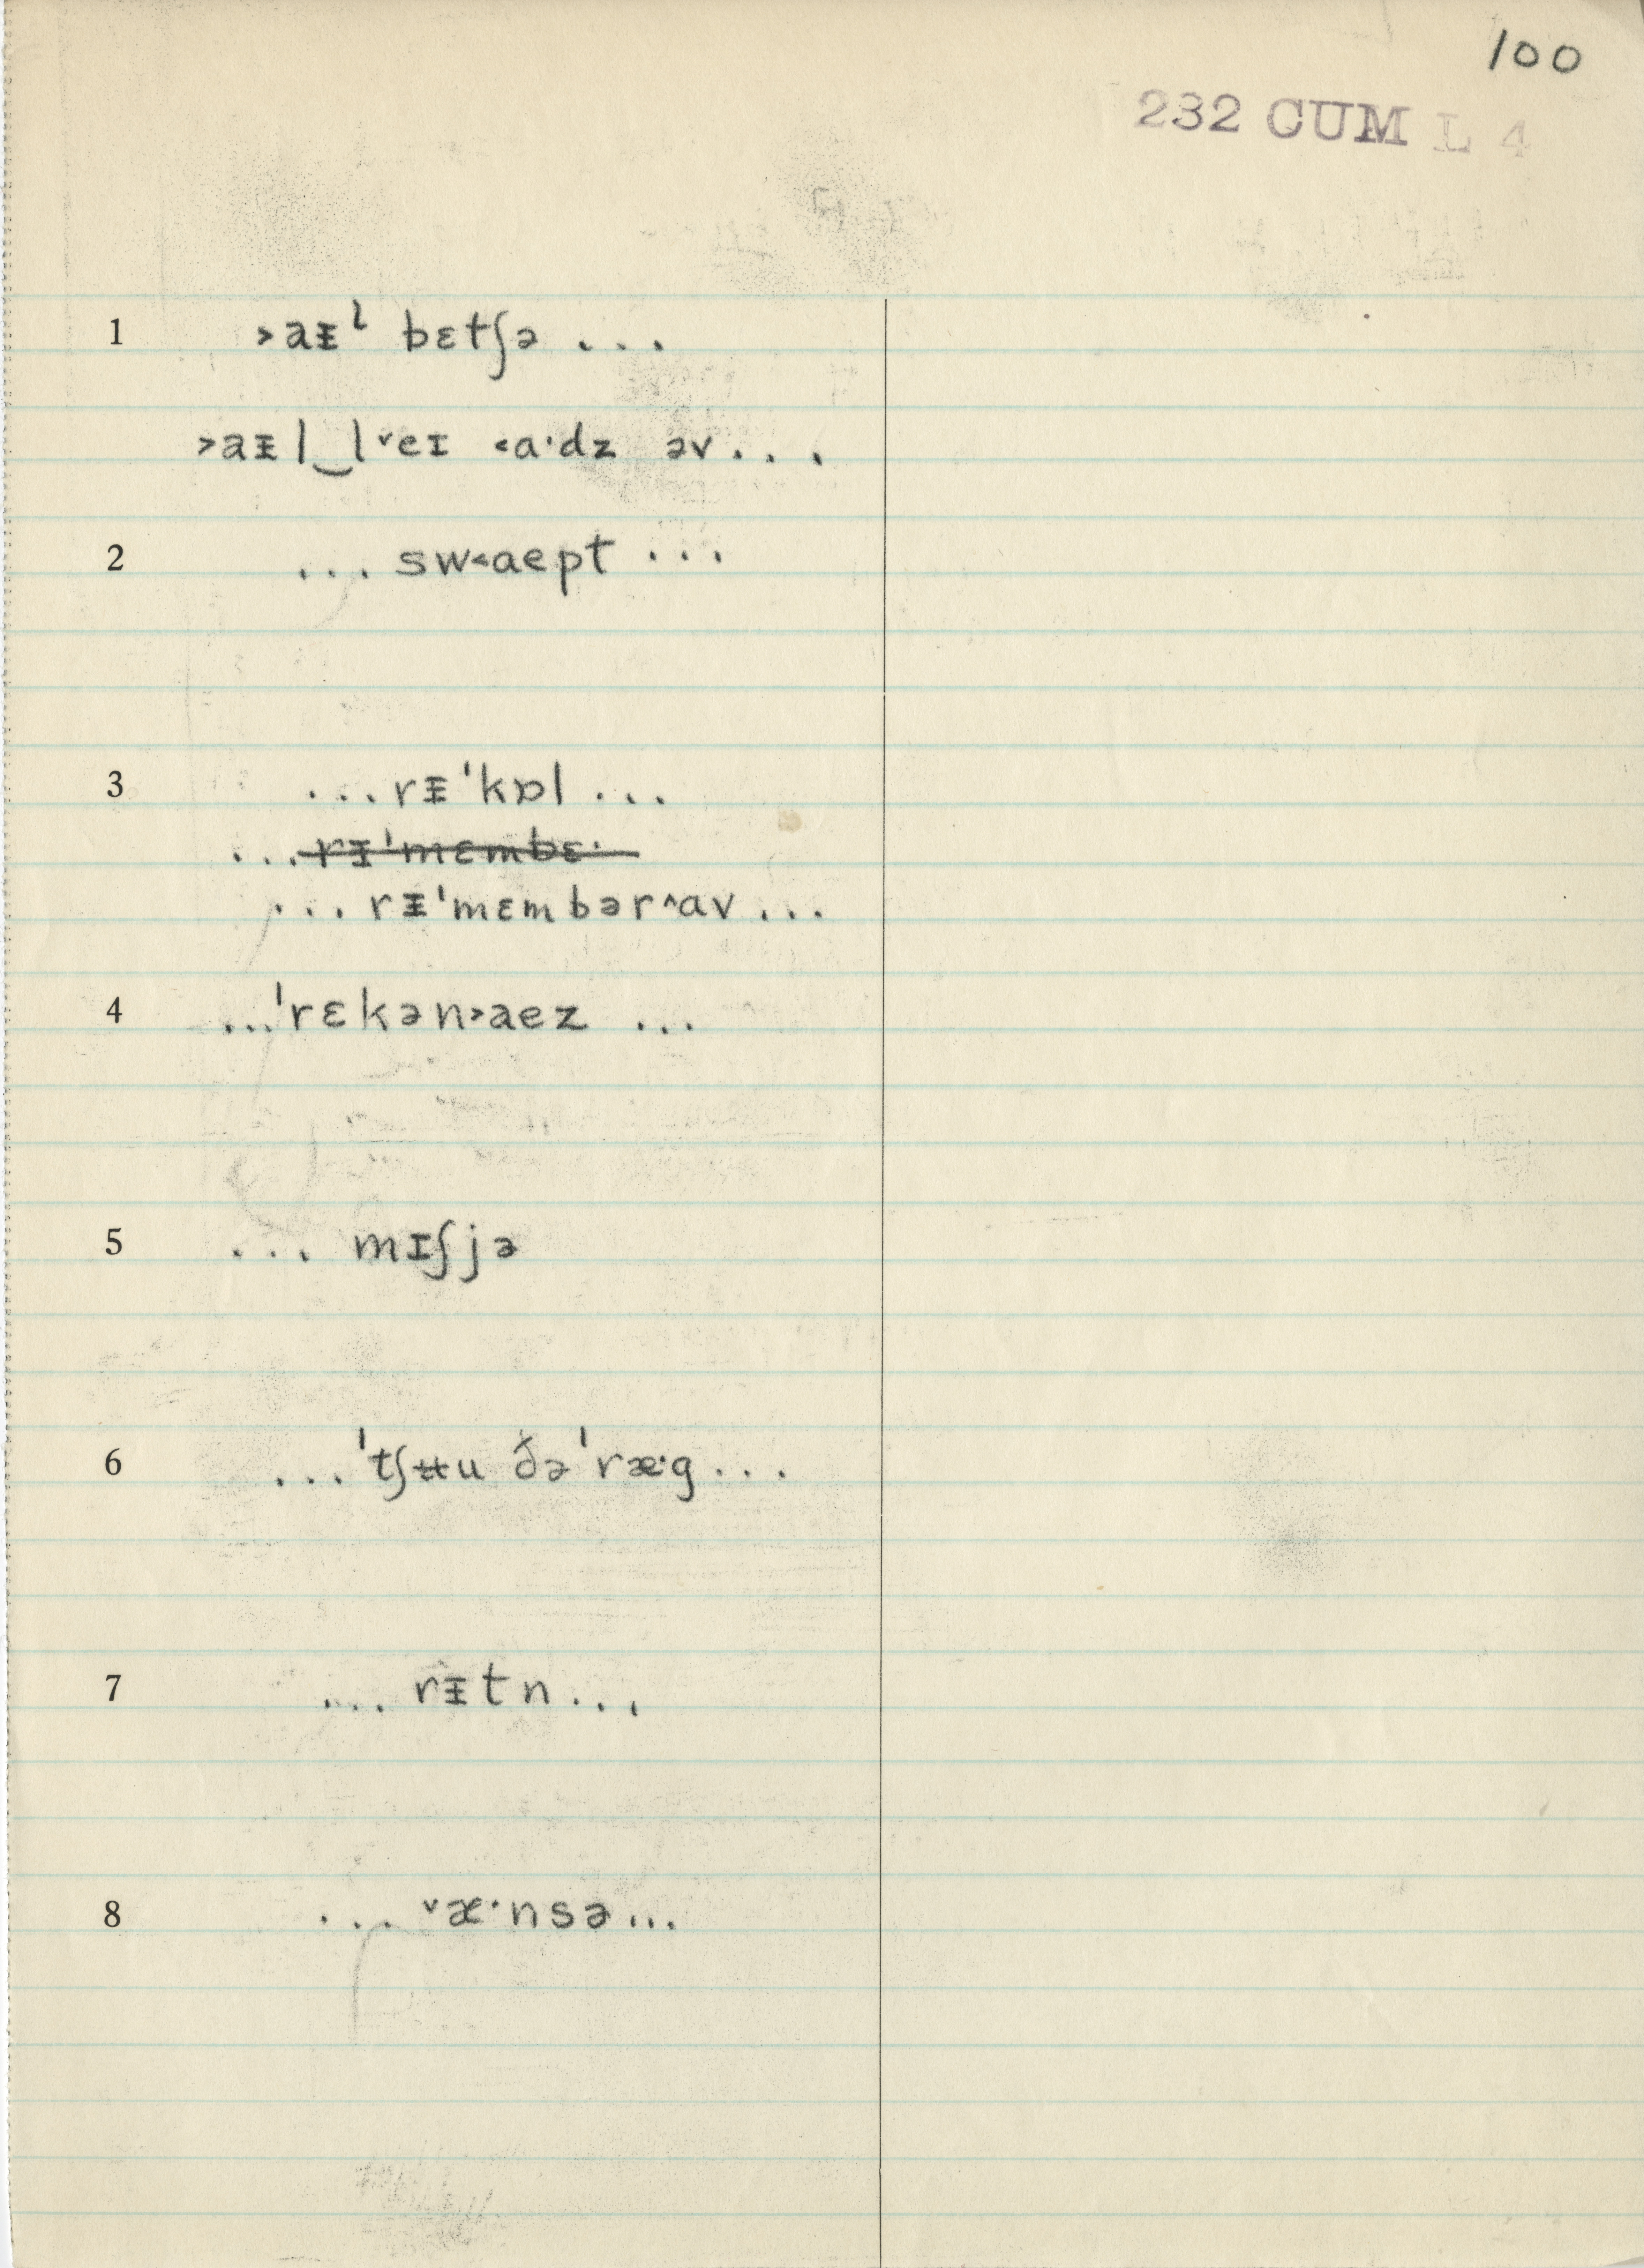 100
232 CUM L 4
1 ˃aᵻˡ bɛtʃə ...
˃aᵻl‿l˅eɪ ˂ɑ·dz əv...
2 ... sw˂aept ...
3 ...rᵻˈkɒl ...
...rᵻˈmɛmbɛ·
... rᵻˈmɛmbər˄ɑv...
4 ...ˈrɛkən˃aez ...
5 ... mɪʃjə
6 ...ˈtʃʉu ðəˈræ·g...
7 ... rᵻtn...
8 ... ˅æ·nsə...